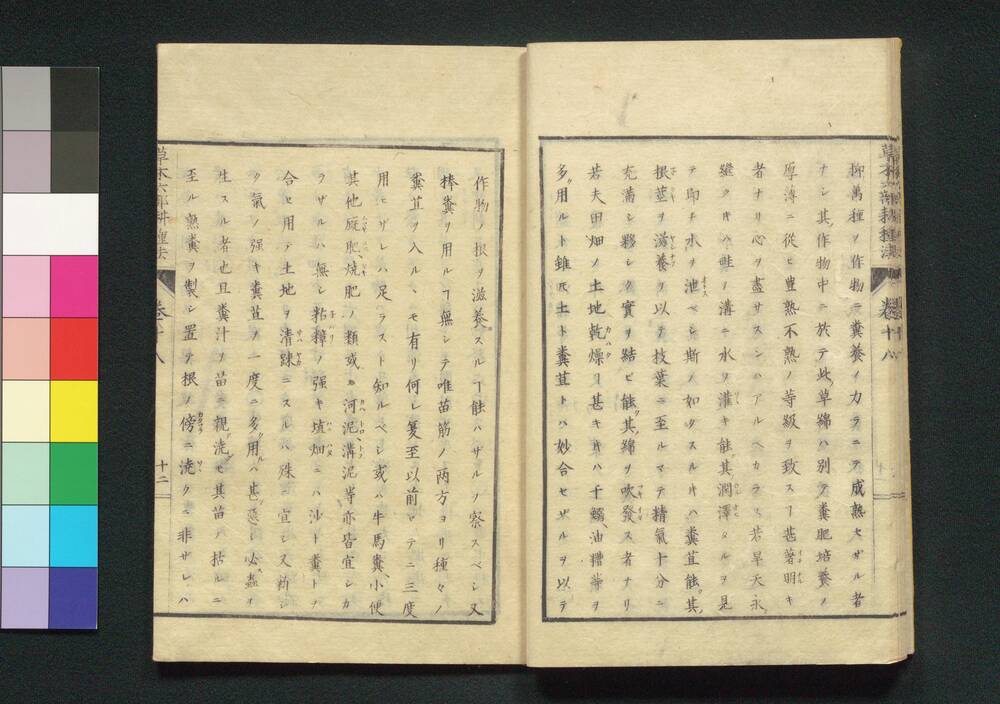 草木六部耕種法 卷十八
抑萬種ノ作物ニ糞養ノ力ラニテ成熟セザル者
ナシ其作物中ニ於テ此草綿ハ別テ糞肥培養ノ
厚薄ニ從ヒ豊熟不熟ノ等級ヲ致スヿ甚著明キ
者ナリ心ヲ盡サズンバアルベカラズ若旱天永
繼クキハ畦ノ溝ニ水ヲ灌キ能其潤澤タルヲ見
テ即チ水ヲ池ベシ斯ノ如クスル片ハ糞苴能其
根莖ヲ滋養ヲ以テ技葉ニ至ルマテ精氣十分ニ
充満シ夥シク實ヲ結ビ能其綿ヲ吹發ス者ナリ
若夫田畑ノ土地乾燥ヿ甚キ片ハ干鰯油糟等ヲ
多ク用ルト雖𪜈土ト糞苴トハ妙合セザルヲ以テ
作物ノ根ヲ滋養スルヿ能ハザルノ察スベシ又
棒糞ヲ用ルヿ無シテ唯苗筋ノ両方ヨリ種々ノ
糞苴ヲ入ルヽモ有リ何レ夏至以前マデニ三度
用ヒザレハ足ラスト知ルベシ或ハ牛馬糞小便
其他厩肥燒肥ノ類或ハ河泥溝泥等亦皆宜シカ
ラザルハ無シ粘糠ノ強キ埴畑ニハ沙ト糞トヲ
合セ用テ土地ヲ清踈ニスルハ殊ニ宜シ又祈シ
ク氣ノ强キ糞苴ヲ一度ニ多ク用ハ其感ニ必蟲ヲ
生スル者也且糞汁ヲ苗ニ親澆セ其苗ノ枯ルニ
至ル熟糞ヲ製シ置テ根ノ傍ニ澆クニ非ザレハ
草木六部耕種法 卷十八 十二